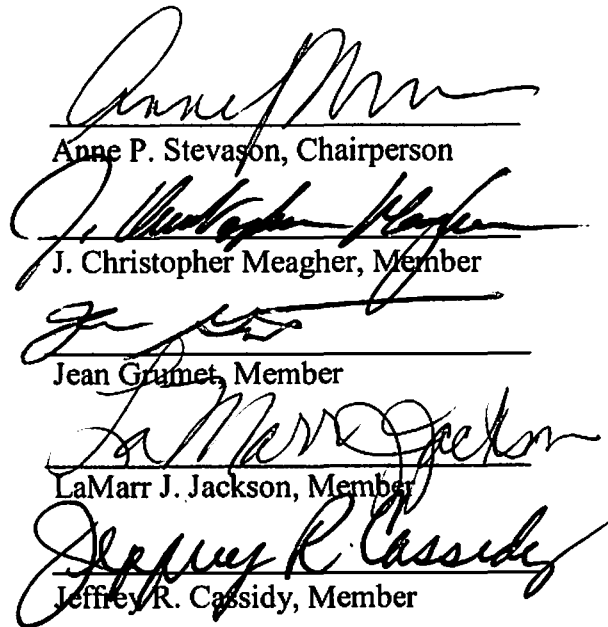 Anne P. Stevason, Chairperson
J. Christopher Meagher
J. Christopher Meagher, Member
Jean Grumet, Member
LaMarr J. Jackson
LaMarr J. Jackson, Member
Jeffrey R. Cassidy
Jeffrey R. Cassidy, Member